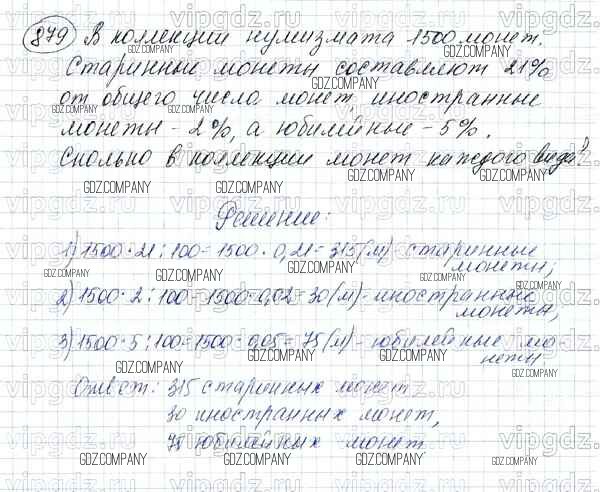 879 В коллекции нумизмата - 1500 монет.
Старинные монеты составляют 21%
от общего числа монет, иностранные
монеты - 2%, а юбилейные - 5%.
Сколько в коллекции монет каждого вида?
Решение:
1) 1500 · 21 : 100 = 1500 · 0,21 = 315 (м) - старинные
монеты;
2) 1500 · 2 : 100 = 1500 · 0,02 = 30 (м) - иностранные
монеты;
3) 1500 · 5 : 100 = 1500 · 0,05 = 75 (м) - юбилейные мо-
неты.
Ответ: 315 старинных монет
30 иностранных монет,
75 юбилейных монет
GDZ.COMPANY
vipgdz.com